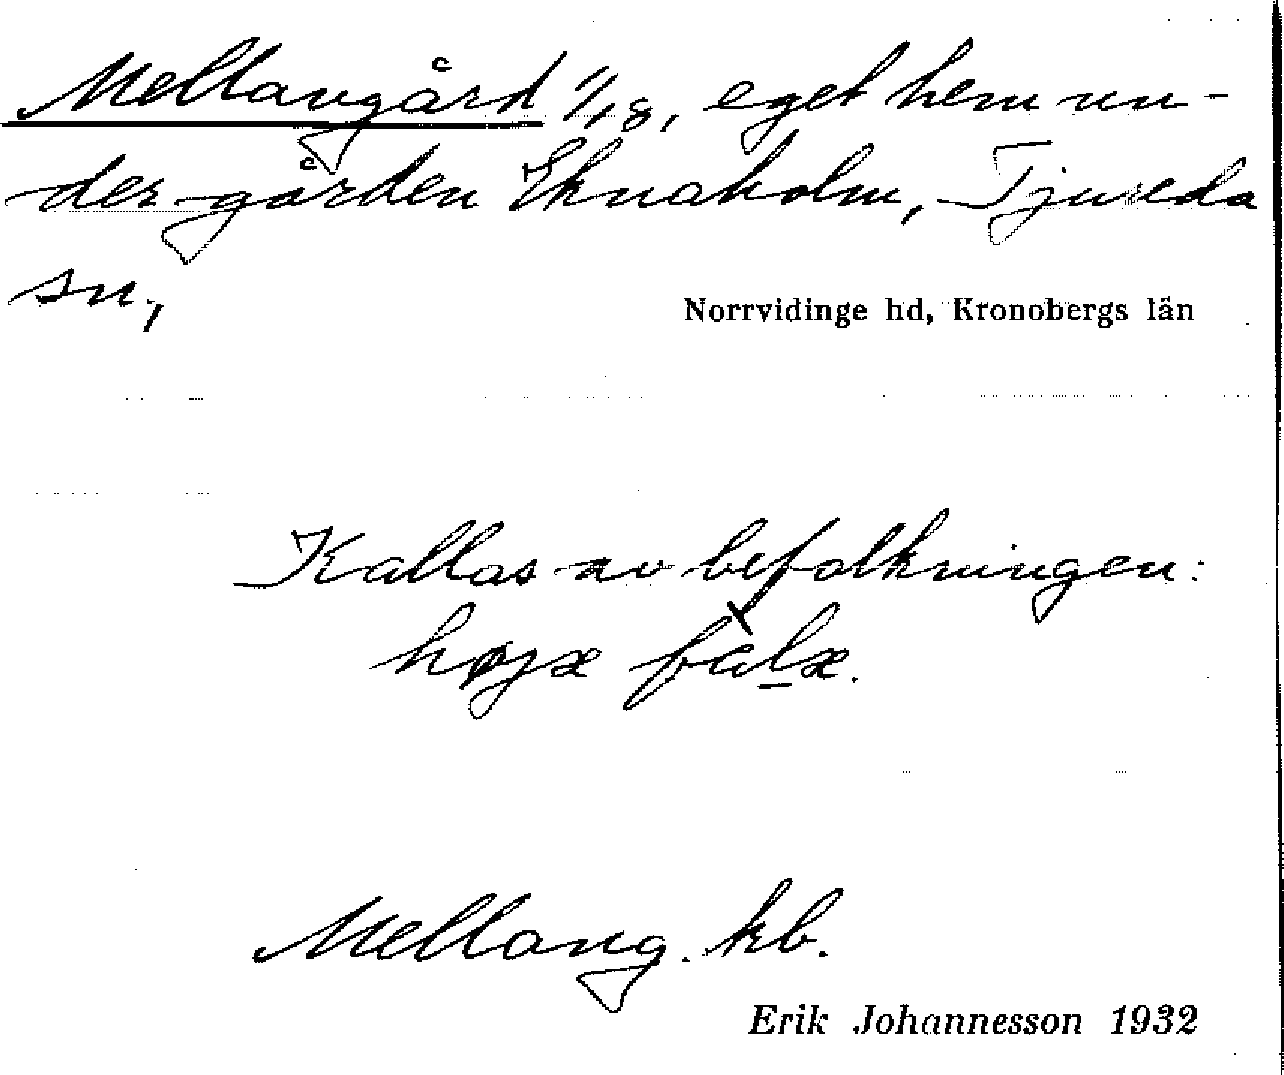 Mellangård 1/18, eget hem un-
der gården Eknaholm, Tjureda
sn.,
Norrvidinge hd, Kronobergs län
Kallas av befolkningen:
Mellang. kb.
Erik Johannesson 1932